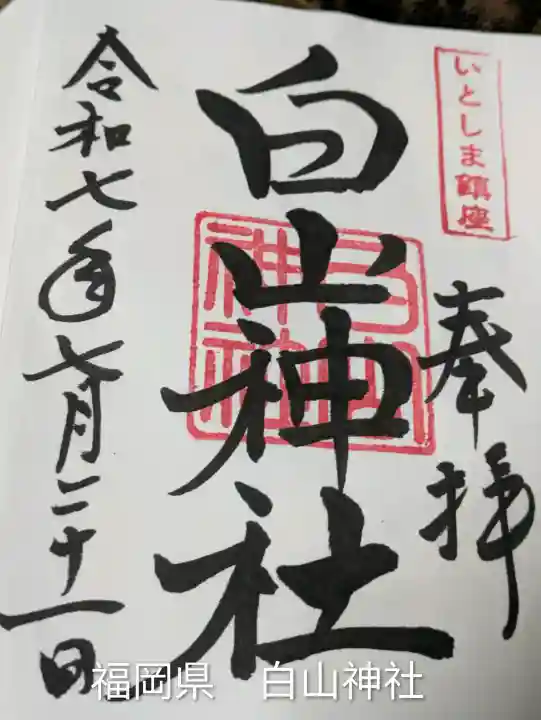 いとしま鎮座
奉拝
白山神社
白山神社
令和七年七月二十一日
福岡県　白山神社